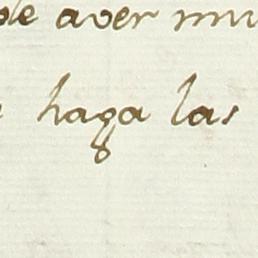 aver
haga las